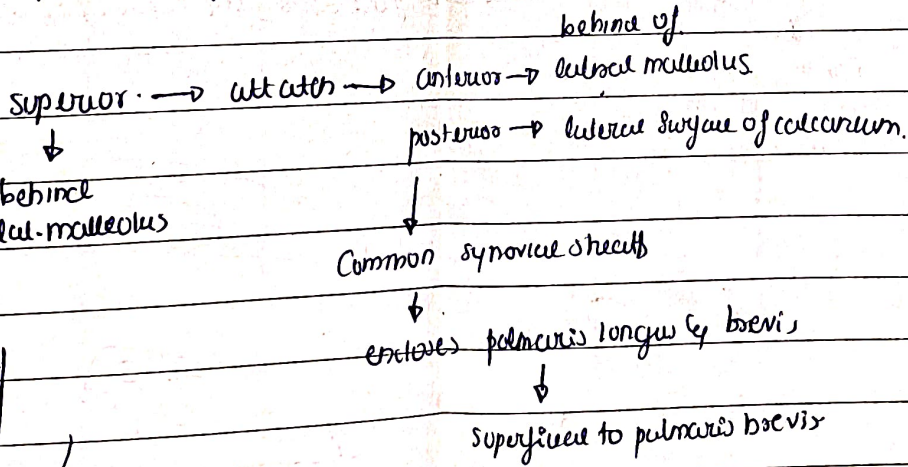 behind of
superior. → attatch → anterior → lateral malleolus.
posterior → lateral surface of calcaneum.
behind
lat. malleolus
Common synovial sheath
encloses palmaris longus & brevis
superficial to palmaris brevis